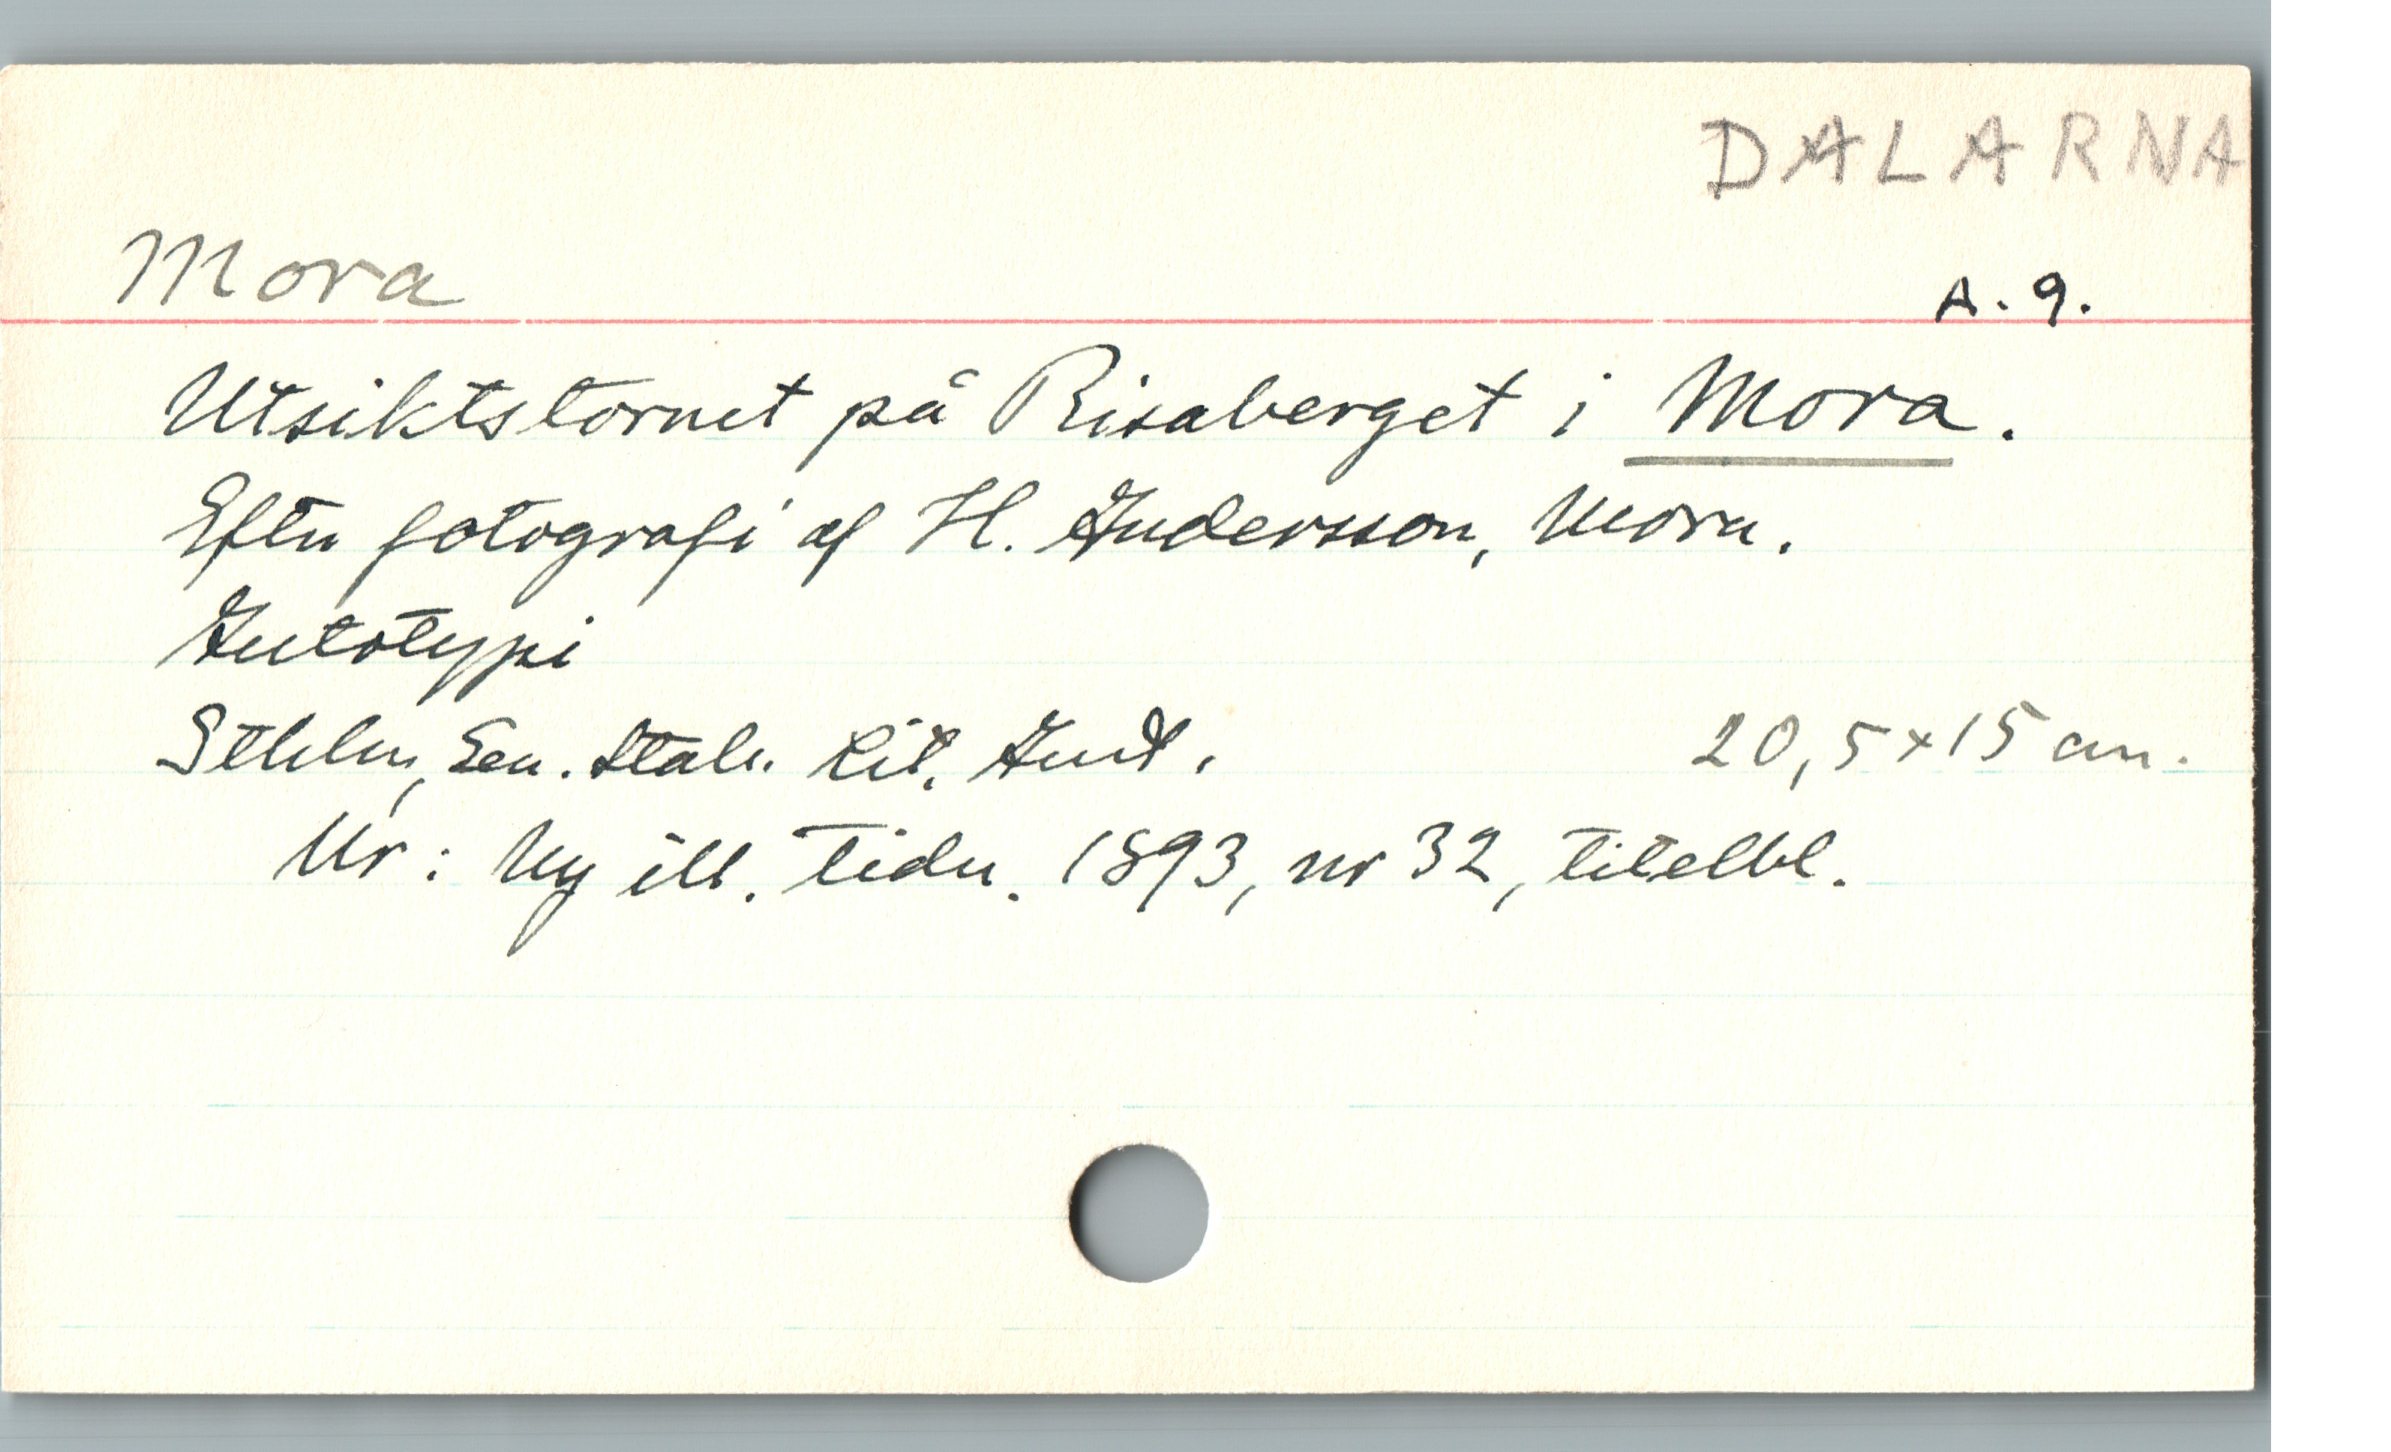 DALARNA
Mora
A. 9.
Utsiktstornet på Risaberget i Mora.
Efter fotografi af H. Andersson, Mora.
Autotypi
Sthlm, Gen. Stab. Lit. Anst. 20,5 x 15 cm.
Ur: Ny ill. tidn. 1893, nr 32, titelbl.